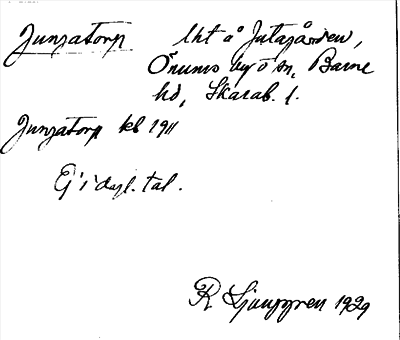 Jungatorp lht å Jutagården,
Önums by o sn, Barne
hd, Skarab. l.
Jungatorp kb 1911
Ej i dagl. tal.
R Ljunggren 1929